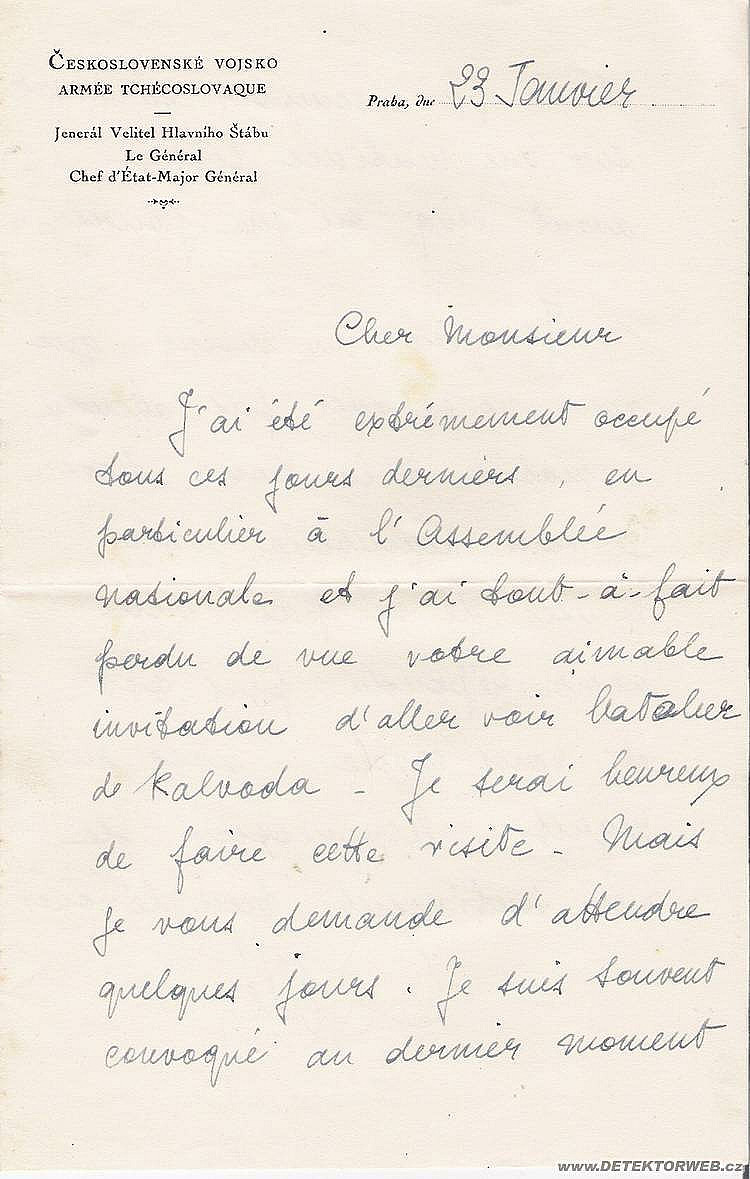 ČESKOSLOVENSKÉ VOJSKO
ARMÉE TCHÉCOSLOVAQUE
Jenerál Velitel Hlavního Štábu
Le Général
Chef d'État-Major Général
Praha, dne 23 Janvier
Cher Monsieur
J'ai été extrêmement occupé
tous ces jours derniers, en
particulier à l'Assemblée
nationale et j'ai tout-à-fait
perdu de vue votre aimable
invitation d'aller voir l'atelier
de Kalvoda - Je serai heureux
de faire cette visite - Mais
je vous demande d'attendre
quelques jours. Je suis souvent
convoqué au dernier moment
www.DETEKTORWEB.cz